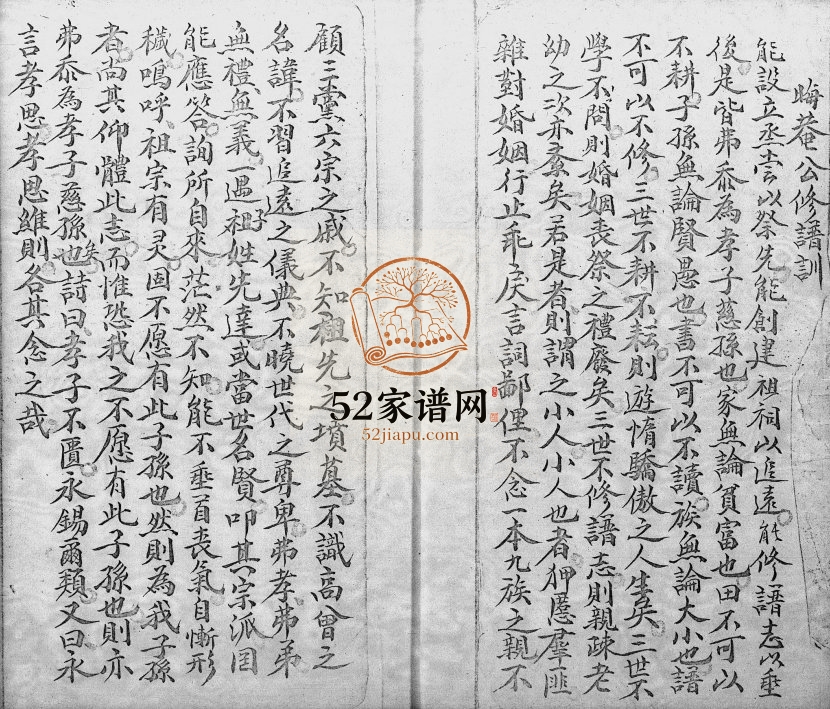 晦菴公修譜訓
能設立烝嘗以祭先能創建祖祠以追遠能修譜志以垂
後是皆弗忝為孝子慈孫也家無論貧富也田不可以
不耕子孫無論賢愚也書不可以不讀族無論大小也譜
不可以不修三世不耕不耘則遊惰驕傲之人生矣三世不
學不問則婚姻喪祭之禮廢矣三世不修譜志則親疎老
幼之次亦紊矣若是者則謂之小人小人也者狎慝羣匪
雜對婚姻行止乖戾言詞鄙俚不念一本九族之親不
顧三黨六宗之戚不知祖先之墳墓不識高曾之
名諱不習追遠之儀典不曉世代之尊卑弗孝弗弟
無禮無義一遇祖姓先達或當世名賢叩其宗派因
子
能應答詢所自來茫然不知能不垂首喪氣自慚形
穢嗚呼祖宗有灵固不愿有此子孫也然則為我子孫
者尚其仰體此志而惟恐我之不愿有此子孫也則亦
弗忝為孝子慈孫也詩曰孝子不匱永錫爾類又曰永
矣
言孝思孝思維則各其念之哉
52家谱网
52jiapu.com